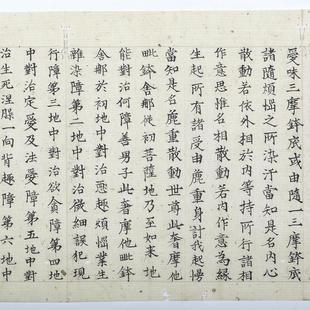 愛味三摩鉢底或由隨一三摩鉢底
諸隨煩惱之所染汙當知是名內心
散動若依外相於內等持所行諸相
作意思惟名相散動若內作意為緣
生起所有諸受由麁重身計我起慢
當知是名麁重散動世尊此奢摩他
毗鉢舍那從初菩薩地乃至如來地
能對治何障善男子此奢摩他毗鉢
舍那於初地中對治惡趣煩惱業生
雜染障第二地中對治微細誤犯現
行障第三地中對治欲貪障第四地
中對治定愛及法愛障第五地中對
治生死涅槃一向背趣障第六地中